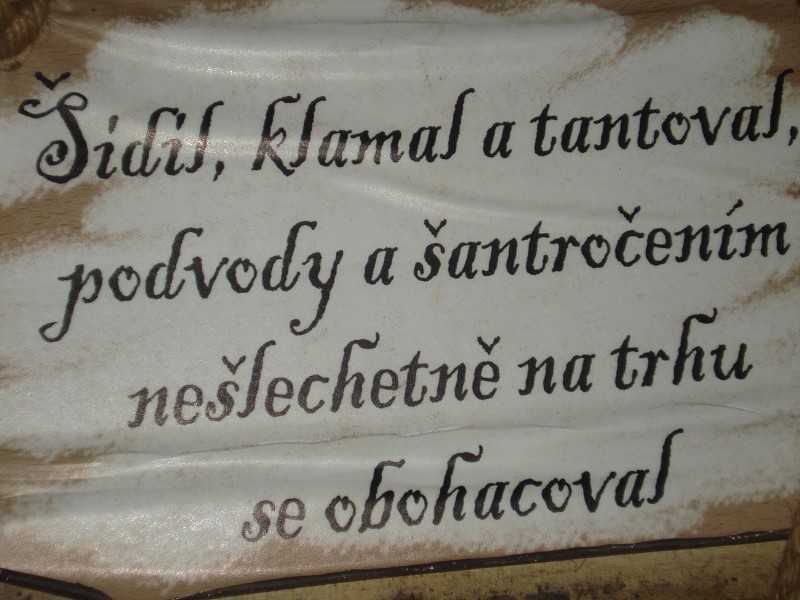 Šidil, klamal a tantoval,
podvody a šantročením
nešlechetně na trhu
se obohacoval